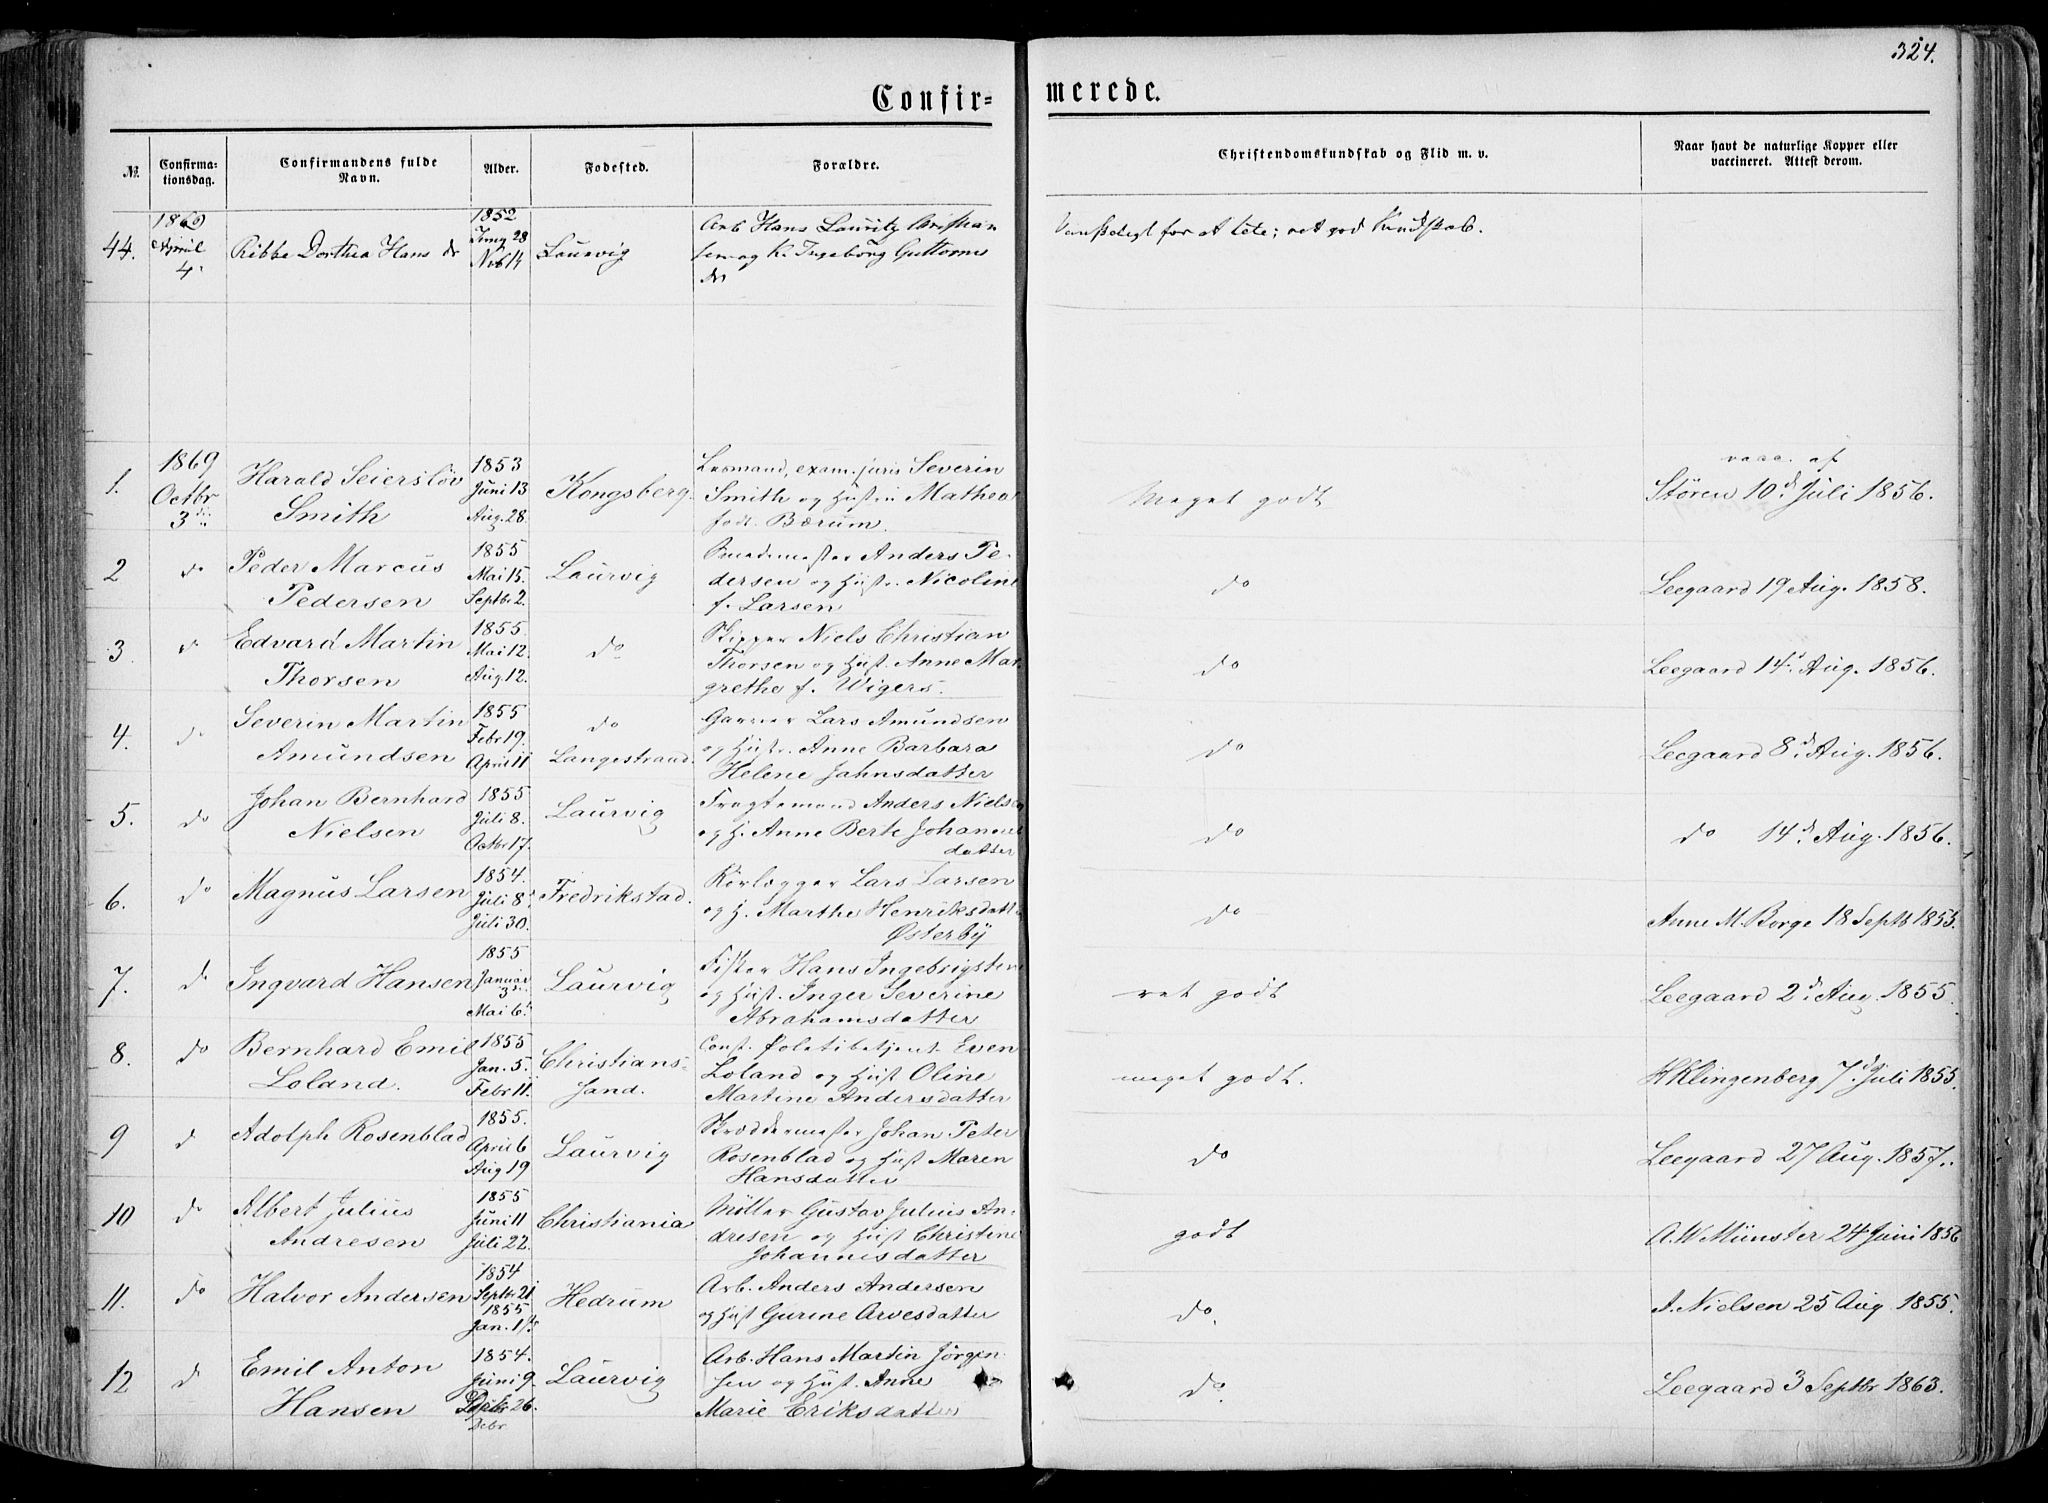 324.
Confir-
merede.
№
Confirma-
tionsdag.
Confirmandens fulde
Navn.
Alder.
Fodested.
Forældre.
Christendomskundskab og Flid m. v.
Naar havt de naturlige Kopper eller
vaccineret. Attest derom.
44.
1869
April
4
Dorthea Hans dr
1852
28
Laurvig
Arb Hans Lauritz Christian
sen og K. Ingeborg Guttorms
dr
for at læse; ret god Kundskab.
1.
1869
Octbr
3die
Harald Seiersløv
Smith
1853
Juni 13
Aug. 28
Kongsberg
Lesmand, exam. juris Severin
Smith og Hustru Mathea
fød. Bærum
Meget godt
vacc. af
Støren 10d. Juli 1856.
2
do
Peder Marcus
Pedersen
1855
Mai 15.
Septbr 2.
Laurvig
Anders Pe-
dersen og Hustr. Nicoline
f. Larsen
do
Leegaard 19 Aug. 1858.
3
do
Edvard Martin
Thorsen
1855.
Mai 12.
Aug. 12.
do
Skipper Niels Christian
Thorsen og Hust. Anne Mar
grethe f. Wigers.
do
Leegaard 14d. Aug. 1856.
4.
do
Severin Martin
Amundsen
1855
Febr 19.
April 11
do
Langestrand.
Garver Lars Amundsen
og Hustr. Anne Barbara
Helene Jahnsdatter
do
Leegaard 8d. Aug. 1856.
5.
do
Johan Bernhard
Nielsen
1855
Juli 8.
Octbr 17.
Laurvig
Fragtemand Anders Niels
og H. Anne Berte Johannes
datter
do
do 14d. Aug. 1856.
6.
do
Magnus Larsen
1854.
Juli 8
Juli 30.
Fredrikstad.
Lars Larsen
og H. Marthe Henriksdatt
Østerby
do
Anne M. Borge 18 Septb 1855.
7.
do
Ingvard Hansen
1855
Januar
3.
Mai 6
Laurvig
Fisker Hans Ingebrigtsen
og Hust. Inger Severine
Abrahamsdatter
ret godt
Leegaard 2d. Aug. 1855.
8.
do
Bernhard Emil
Loland.
1855
Jan. 5.
Febr 11.
Christians-
sand.
Const. Politibetjent Even
Loland og Hust Oline
Martine Andersdatter
meget godt.
H Klingenberg 7d. Juli 1855.
9
do
Adolph Rosenblad
1855.
April 6
Aug 19
Laurvig
Skræddermester Johan Peter
Rosenblad og Hust Maren
Hansdatter
do
Leegaard 27 Aug. 1857.
10
do
Albert Julius
Andresen
1855
Juni 11
Juli 22.
Christiania
Møller Gustav Julius An-
dresen og Hust Christine
Johannesdatter
godt
A.W. Münster 24 Juni 1856
11.
do
Halvor Andersen
1854
Septbr 21
1855
Jan. 1ste
Hedrum
Arb. Anders Andersen
og Hust Gurine Arvesdatter
do.
A. Nielsen 25 Aug. 1855.
12
do
Emil Anton
Hansen
1854.
Juni 9
26.
Decbr
Laurvig
Arb. Hans Martin Jörgen
sen og Hust. Anne
Marie Eriksdatter
do
Leegaard 3 Septbr 1863.